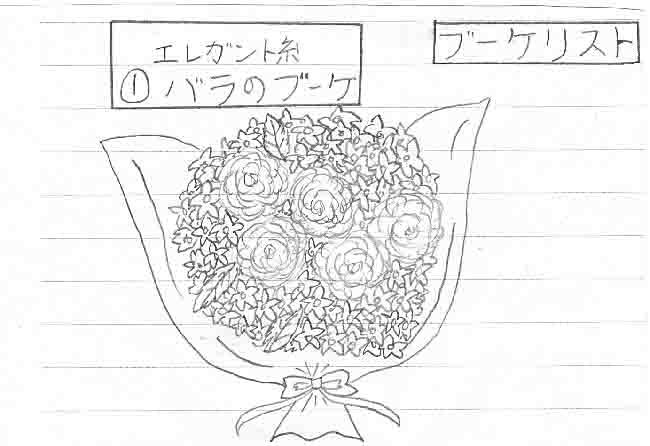 ブーケリスト
エレガント糸
① バラのブーケ